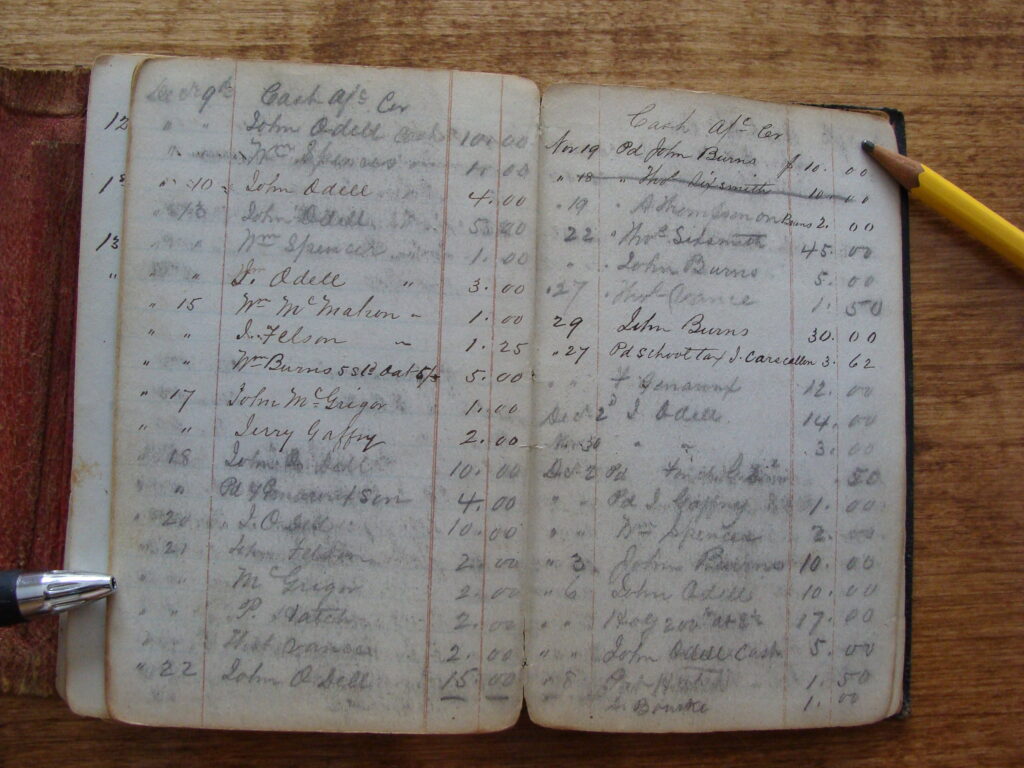 Dec 9th Cash a/c Cr
12 " " John Odell Cash 10.00
" " Wm Spencer 1.00
" 10 John Odell 4.00
" 13 John Odell
13 " " Wm Spencer 1.00
" " Jn Odell " 3.00
" 15 Wm McMahon " 1.00
" " J. Felson " 1.25
" " Wm Burns 5.00
" 17 John McGrigor 1.00
" " Jerry Gaffry 2.00
" 18 John O Dell 10.00
" Pd Son 4.00
" 20 J. O Dell 10.00
" 21 John Felson 2.00
" McGrigor 2.00
" " P. Hatch 2.00
" " 2.00
" 22 John O Dell 15.00
Cash a/c Cr
Nov 19 Pd John Burns $ 10.00
" 18 " Thos Sixsmith 10.00
" 19 " A Thompson on Burns 2.00
22 " Thos Sixsmith 45.00
" " John Burns 5.00
" 27 " Thos 1.50
29 John Burns 30.00
" 27 Pd School tax J. Carscallen 3.62
" " 12.00
Dec 2d J. Odell 14.00
Nov 30 " " 3.00
Dec 2 Pd 50
" " Pd J. Gaffry 1.00
" " Wm Spencer 2.00
" 3 John Burns 10.00
" 6 John Odell 10.00
" " Hog 200 at 17.00
" " John Odell Cash 5.00
" 8 Pd 1.50
Bourke 1.00